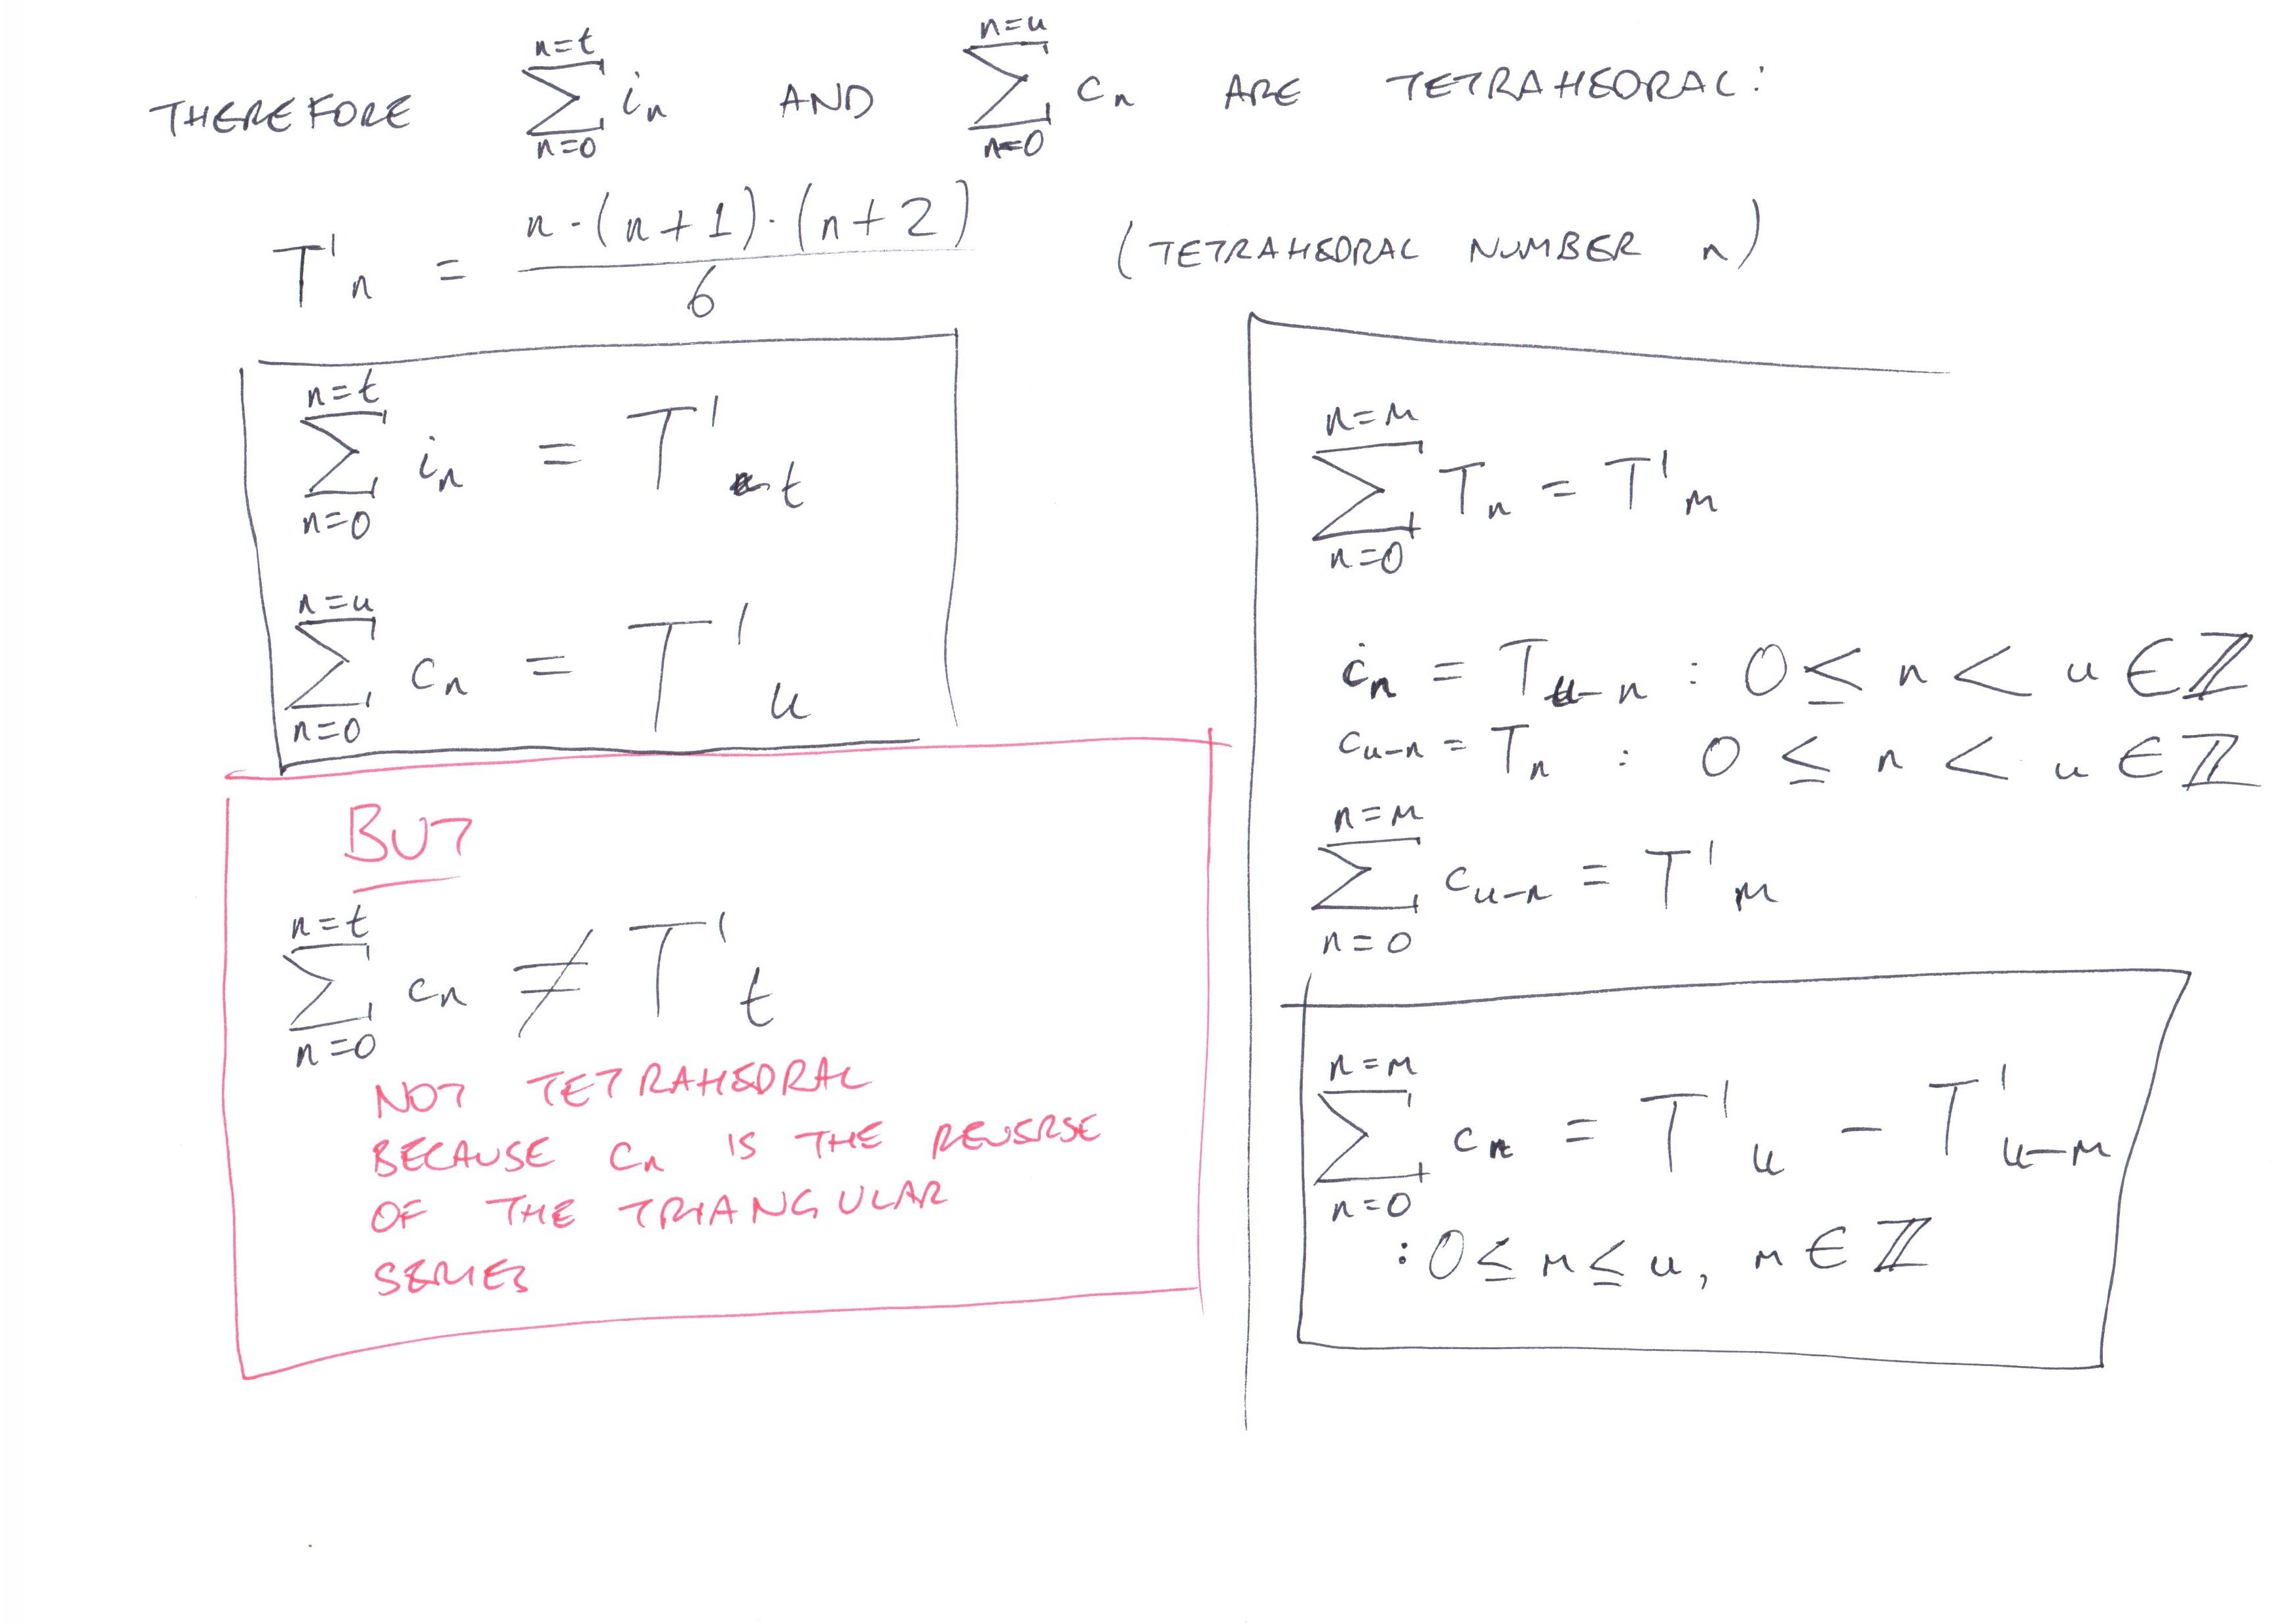 THEREFORE \sum_{n=0}^{n=t} i_n AND \sum_{n=0}^{n=u} c_n ARE TETRAHEDRAL:
T'_n = \frac{n·(n+1)·(n+2)}{6} (TETRAHEDRAL NUMBER n)
\sum_{n=0}^{n=t} i_n = T'_t
\sum_{n=0}^{n=u} c_n = T'_u
BUT
\sum_{n=0}^{n=t} c_n ≠ T'_t
NOT TETRAHEDRAL
BECAUSE c_n IS THE REVERSE
OF THE TRIANGULAR
SERIES
\sum_{n=0}^{n=m} T_n = T'_m
c_n = T_{u-n} : 0 ≤ n < u ∈ ℤ
c_{u-n} = T_n : 0 ≤ n < u ∈ ℤ
\sum_{n=0}^{n=m} c_{u-n} = T'_m
\sum_{n=0}^{n=m} c_n = T'_u - T'_{u-m}
: 0 ≤ m ≤ u, m ∈ ℤ